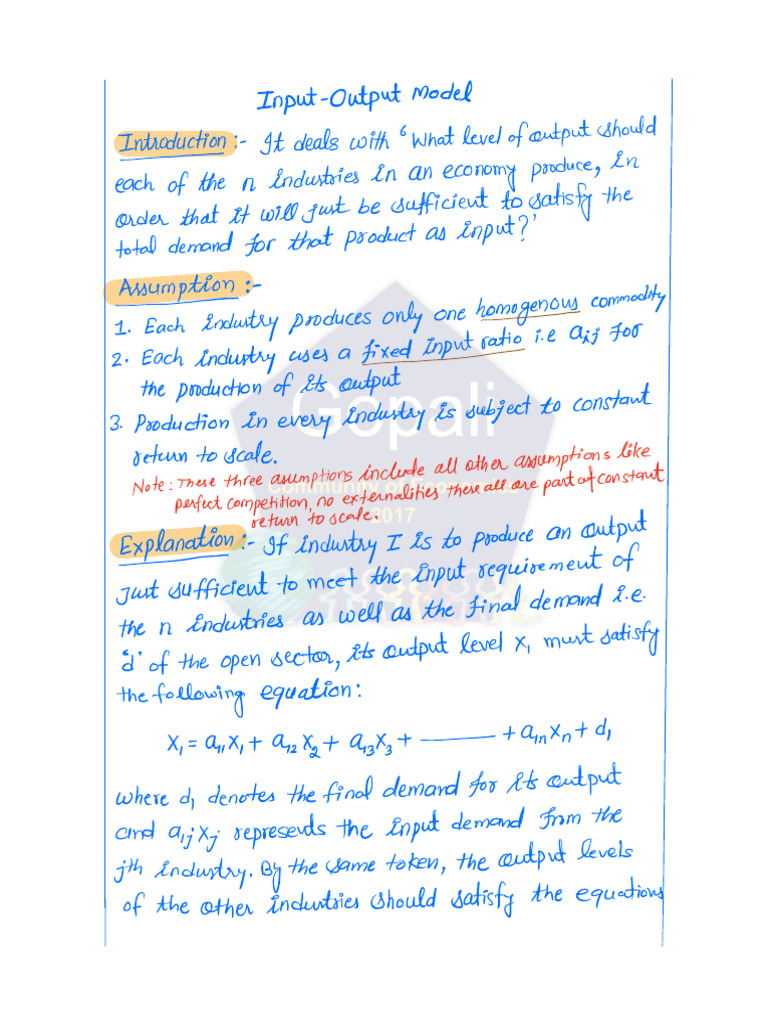 Input-Output Model
Introduction :- It deals with ‘What level of output should
each of the n industries in an economy produce, in
order that it will just be sufficient to satisfy the
total demand for that product as input?’
Assumption :-
1. Each industry produces only one homogenous commodity
2. Each industry uses a fixed input ratio i.e aij for
the production of its output
3. Production in every industry is subject to constant
return to scale.
Note: These three asumptions include all other assumptions like
perfect competition, no externalities these all are part of constant
return to scale.
Explanation :- If industry I is to produce an output
just sufficient to meet the input requirement of
the n industries as well as the final demand i.e.
‘d’ of the open sector, its output level x₁ must satisfy
the following equation:
x₁ = a₁₁x₁ + a₁₂x₂ + a₁₃x₃ + ——— + a₁ₙxₙ + d₁
where d₁ denotes the final demand for its output
and a₁ⱼxⱼ represents the input demand from the
jth industry. By the same token, the output levels
of the other industries should satisfy the equations
Gopali
2017